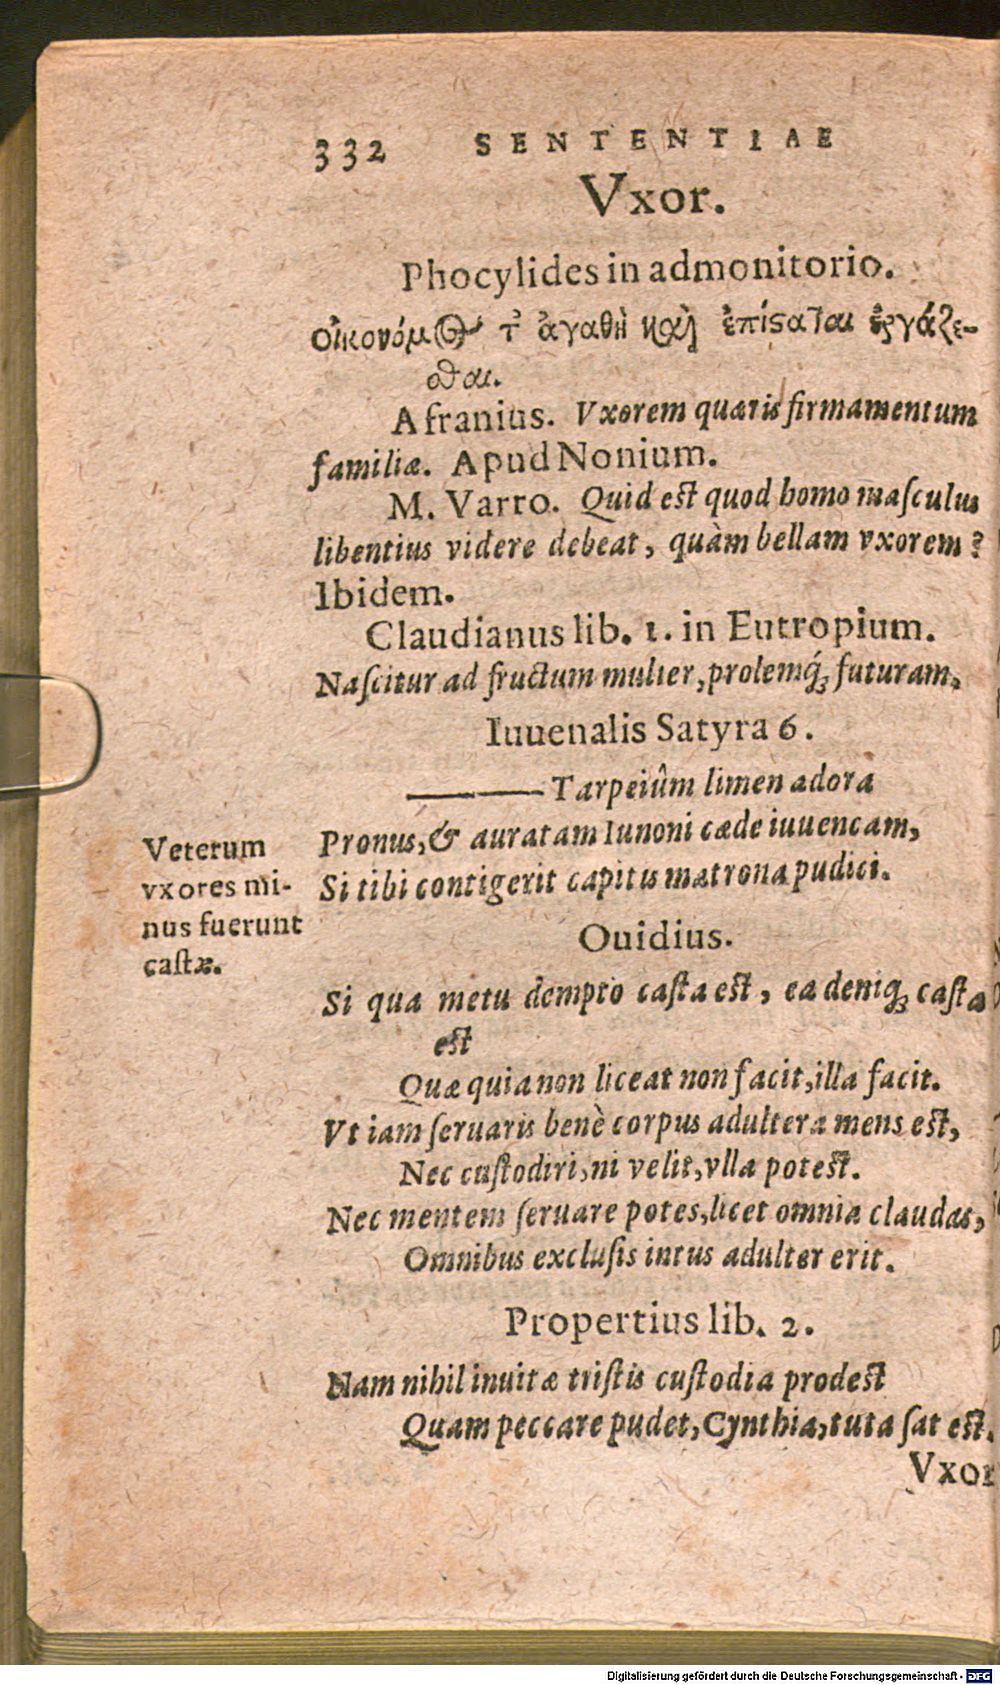 332 SENTENTIAE
Vxor.
Phocylides in admonitorio.
οἰκονόμος τ' ἀγαθὴ καὶ ἐπίσταται ἐργάζε-
σθαι.
Afranius. Vxorem quæris firmamentum
familiæ. Apud Nonium.
M. Varro. Quid est quod homo maſculus
libentius videre debeat, quàm bellam vxorem?
Ibidem.
Claudianus lib. 1. in Eutropium.
Naſcitur ad fructum mulier, prolemq́ꝫ futuram,
Iuuenalis Satyra 6.
——— Tarpeiûm limen adora
Pronus, & auratam Iunoni cæde iuuencam,
Si tibi contigerit capitis matrona pudici.
Veterum
vxores mi-
nus fuerunt
caſtæ.
Ouidius.
Si qua metu dempto caſta est, ea deniqꝫ caſta
est
Quæ quia non liceat non facit, illa facit.
Vt iam ſeruaris benè corpus adultera mens est,
Nec cuſtodiri, ni velit, vlla potest.
Nec mentem ſeruare potes, licet omnia claudas,
Omnibus excluſis intus adulter erit.
Propertius lib. 2.
Nam nihil inuitæ triſtis cuſtodia prodest
Quam peccare pudet, Cynthia, tuta ſat est.
Vxor
Digitalisierung gefördert durch die Deutsche Forschungsgemeinschaft - DFG